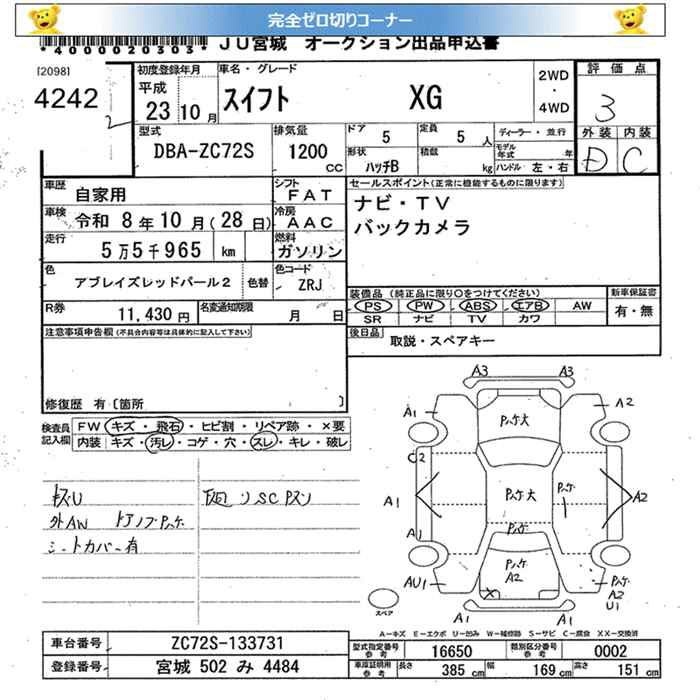 完全ゼロ切りコーナー
*4000020303* JU宮城 オークション出品申込書
[2098]
4242
2
初度登録年月
平成
23 10 月
車名・グレード
スイフト XG
2WD
・
4WD
評価点
3
外装 内装
D C
型式
DBA-ZC72S
排気量
1200
CC
ドア
5
定員
5 人
形状
ハッチB
積載
kg
ディーラー・並行
モデル年式 年
ハンドル 左・右
車歴
自家用
シフト
FAT
車検
令和 8年10月(28日)
冷房
AAC
走行
5万5千965 km
燃料
ガソリン
色
アブレイズレッドパール2
色替
色コード
ZRJ
R券
11,430 円
名変通知期限
月 日
セールスポイント(正常に機能するものに限ります)
ナビ・TV
バックカメラ
装備品 (純正品に限り○をつけてください)
PS PW ABS エアB AW
SR ナビ TV カワ
新車保証書
有・無
後日品
取説・スペアキー
注意事項申告欄(不具合内容等は具体的に記入して下さい)
修復歴 有 [箇所 ]
検査員記入欄
FW キズ・飛石・ヒビ割・リペア跡・×要
内装 キズ・汚レ・コゲ・穴・スレ・キレ・破レ
外AW ドアノブPㇾケ
シートカバー有
A3 A3
A1 A2
C2
A1 A2
A1
AU1
A2
A2
U1
A1 A1
スペア
A-キズ E-エクボ U-凹み W-補修跡 S-サビ C-腐食 XX-交換済
車台番号 ZC72S-133731
登録番号 宮城 502 み 4484
型式指定番号 参考 16650
類別区分番号 参考 0002
車庫証明用 参考 長さ 385 cm 幅 169 cm 高さ 151 cm